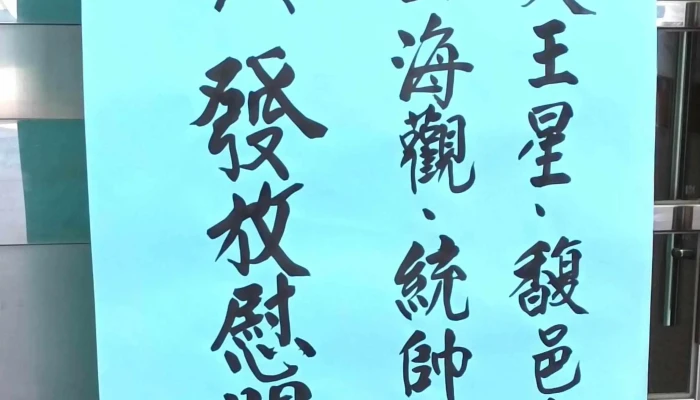 王星、馥邑
海觀、統帥
發放慰